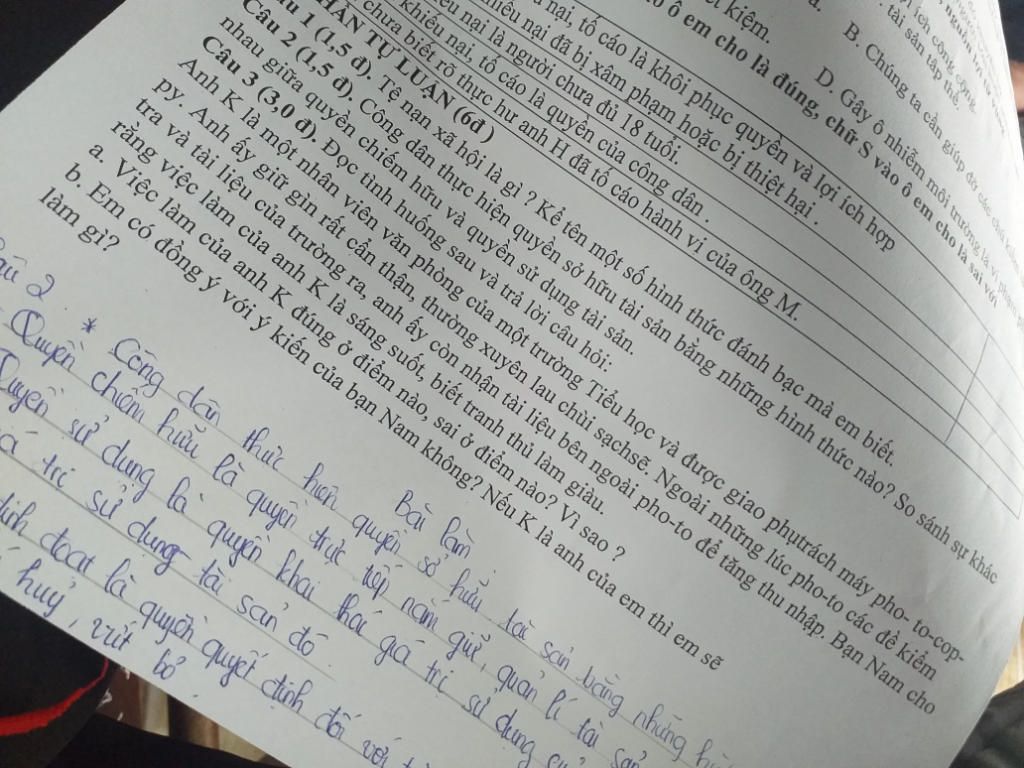 ết kiệm.
B. Chúng ta cần giúp đỡ các
tài sản tập thể.
ích công cộng.
D. Gây ô nhiễm môi trường là vi phạm
ô em cho là đúng, chữ S vào ô em cho là sai với
nại, tố cáo là khôi phục quyền và lợi ích hợp
nại đã bị xâm phạm hoặc bị thiệt hại.
nại là người chưa đủ 18 tuổi.
khiếu nại, tố cáo là quyền của công dân .
chưa biết rõ thực hư anh H đã tố cáo hành vi của ông M.
PHẦN TỰ LUẬN (6đ )
Câu 1 (1,5 đ). Tệ nạn xã hội là gì ? Kể tên một số hình thức đánh bạc mà em biết.
Câu 2 (1,5 đ). Công dân thực hiện quyền sở hữu tài sản bằng những hình thức nào? So sánh sự khác
nhau giữa quyền chiếm hữu và quyền sử dụng tài sản.
Câu 3 (3,0 đ). Đọc tình huống sau và trả lời câu hỏi:
Anh K là một nhân viên văn phòng của một trường Tiểu học và được giao phụtrách máy pho- to-cop-
py. Anh ấy giữ gìn rất cẩn thân, thường xuyên lau chùi sạchsẽ. Ngoài những lúc pho-to các đề kiểm
tra và tài liệu của trường ra, anh ấy còn nhận tài liệu bên ngoài pho-to để tăng thu nhập. Bạn Nam cho
rằng việc làm của anh K là sáng suốt, biết tranh thủ làm giàu.
a. Việc làm của anh K đúng ở điểm nào, sai ở điểm nào? Vì sao ?
b. Em có đồng ý với ý kiến của bạn Nam không? Nếu K là anh của em thì em sẽ
làm gì?
Bài làm
2
* Công dân thực hiện quyền sở hữu tài sản bằng những
Quyền chiếm hữu là quyền trực tiếp nắm giữ, quản lí tài sản
Quyền sử dụng là quyền khai thác giá trị sử dụng
trị sử dụng tài sản đó.
định đoạt là quyền quyết định đối với
huỷ, vứt bỏ.